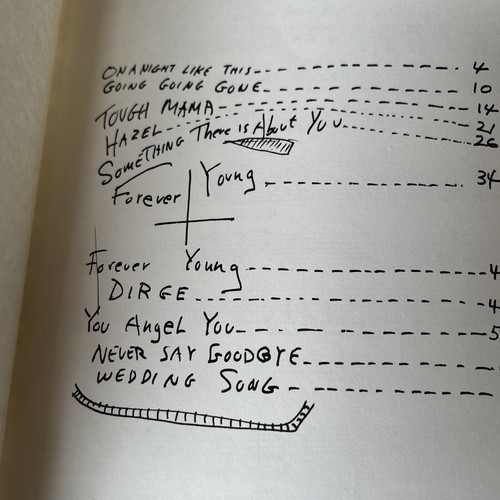 ON A NIGHT LIKE THIS 4
GOING GOING GONE 10
TOUGH MAMA 14
HAZEL 21
SOMETHING There is About You 26
Forever Young 34
Forever Young 4
DIRGE 4
You Angel You 5
NEVER SAY GOODBYE
WEDDING SONG